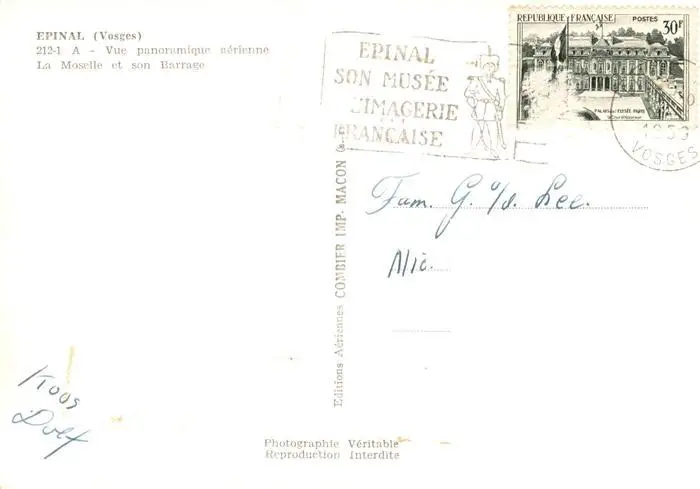 EPINAL (Vosges)
212-1 A - Vue panoramique aérienne
La Moselle et son Barrage
EPINAL
SON MUSÉE
L'IMAGERIE
FRANÇAISE
RÉPUBLIQUE FRANÇAISE POSTES
30F
PALAIS DE L'ÉLYSÉE PARIS
VOSGES
Editions Aériennes COMBIER IMP. MACON
Fam. G. v/d. Lee.
Nic.
Koos
Dolf
Photographie Véritable
Reproduction Interdite